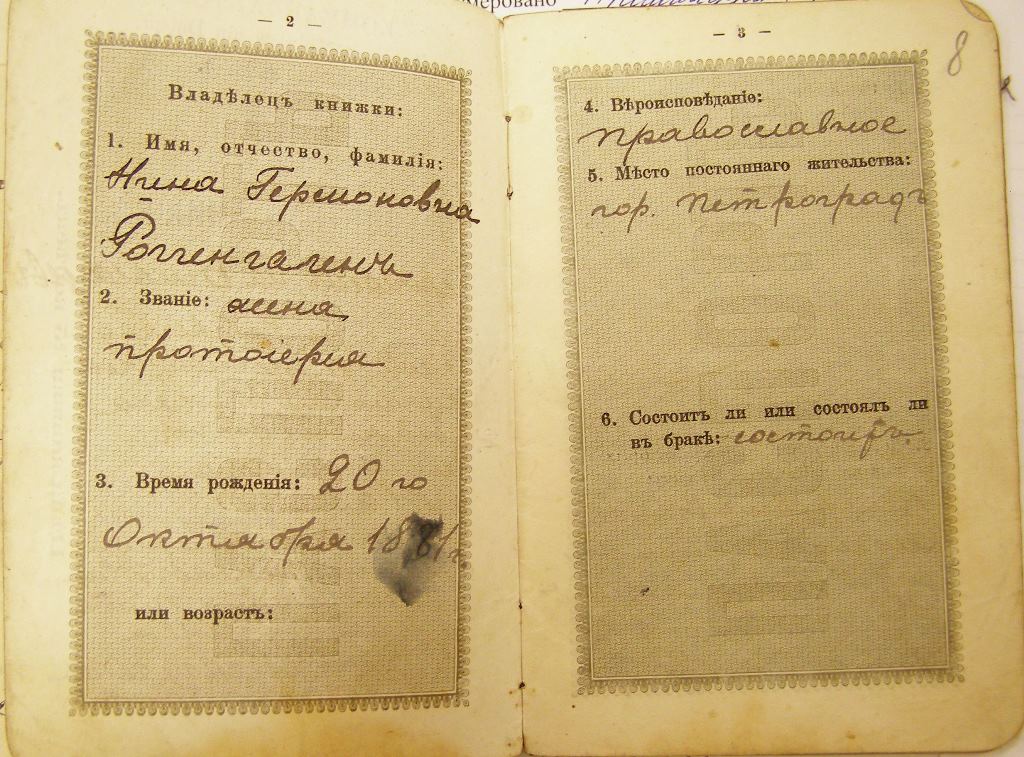 — 2 —
Владѣлецъ книжки:
1. Имя, отчество, фамилія:
Нина Гермоновна
Роггенгагенъ
2. Званіе: жена
протоіерея
3. Время рожденія: 20 го
Октября 1881 г.
или возрастъ:
меровано
— 3 —
8
4. Вѣроисповѣданіе:
православное
5. Мѣсто постояннаго жительства:
гор. Петроградъ
6. Состоитъ ли или состоялъ ли
въ бракѣ: состоитъ.